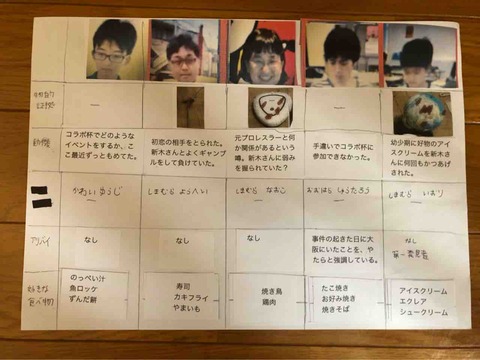 物的
証拠
動機
コラボ杯でどのような
イベントをするか、こ
こ最近ずっともめてた。
初恋の相手をとられた。
新木さんとよくギャンブ
ルをして負けていた。
元プロレスラーと何
か関係があるという
噂。新木さんに弱み
を握られていた?
手違いでコラボ杯に
参加できなかった。
幼少期に好物のアイ
スクリームを新木さ
んに何回もかつあげ
された。
かわい ゆうじ
しまむら ようへい
しまむら なおこ
おおはら しょうたろう
しまむら いおり
アリバイ
なし
なし
なし
事件の起きた日に大
阪にいたことを、や
たらと強調している。
なし
第一発見者
好きな
食べ物
のっぺい汁
魚ロッケ
ずんだ餅
寿司
カキフライ
やまいも
焼き鳥
鶏肉
たこ焼き
お好み焼き
焼きそば
アイスクリーム
エクレア
シュークリーム